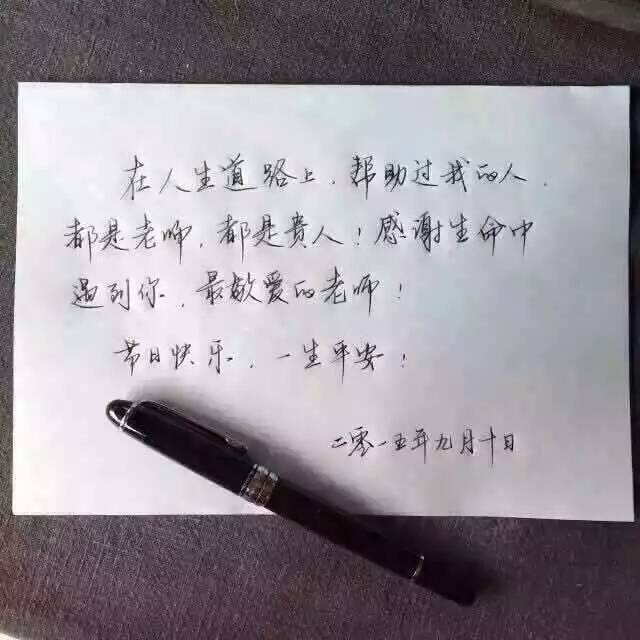 在人生道路上，帮助过我的人，
都是老师，都是貴人！感谢生命中
遇到你，最敬爱的老师！
节日快乐，一生平安！
二零一五年九月十日